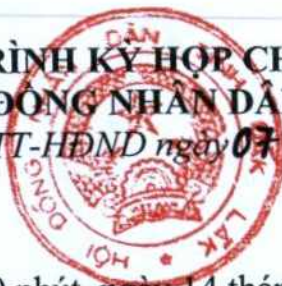 RÌNH KỲ HỌP CH
ĐỒNG NHÂN DÂ
TT-HĐND ngày 07
HỘI ĐỒNG DÂN LẮK
phút, ngày 14 thán